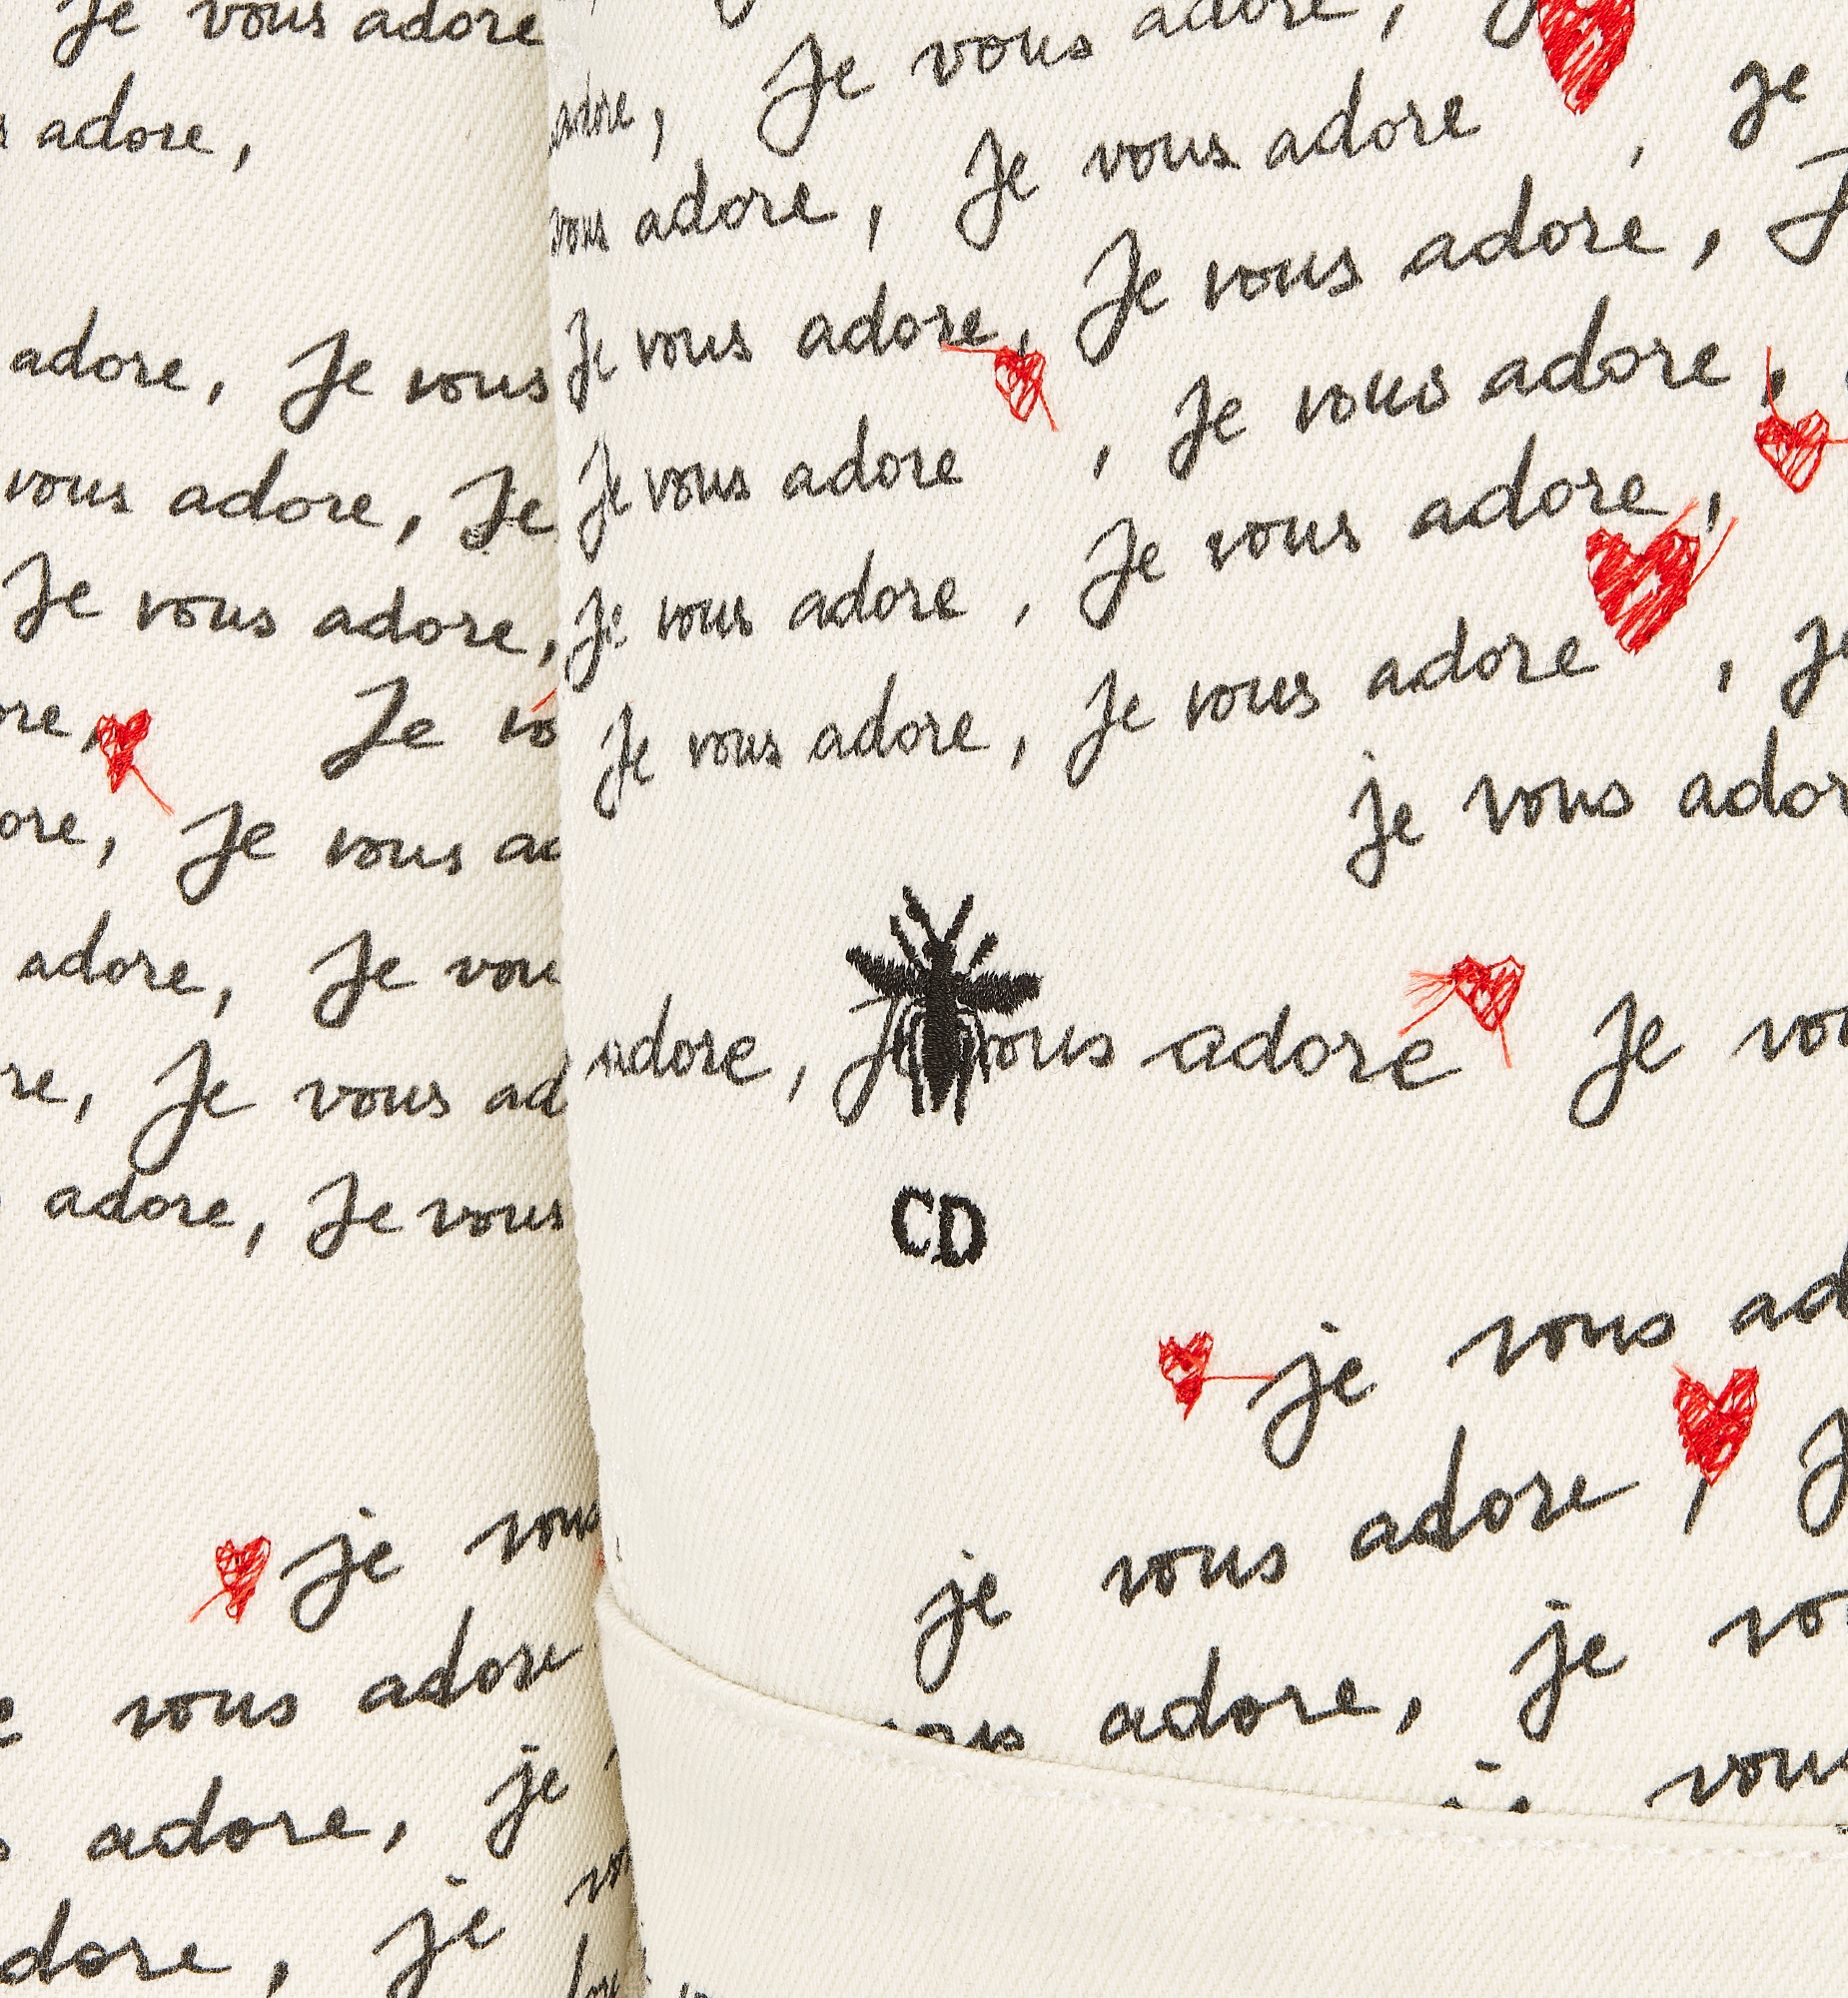 Je vous adore
adore,
adore, Je vous
vous adore, Je
Je vous adore,
Je
Je vous
adore, Je
Je vous
adore, Je vous
je vous
vous adore
adore, je
je
adore, Je vous adore,
vous adore, Je vous adore, je
Je vous adore, Je vous adore,
Je vous adore, Je vous adore,
Je vous adore, Je vous adore,
Je vous adore, Je vous adore,
Je vous adore, Je vous adore, Je
je vous
adore, vous adore Je
CD
je vous
je vous adore,
adore, je
vous